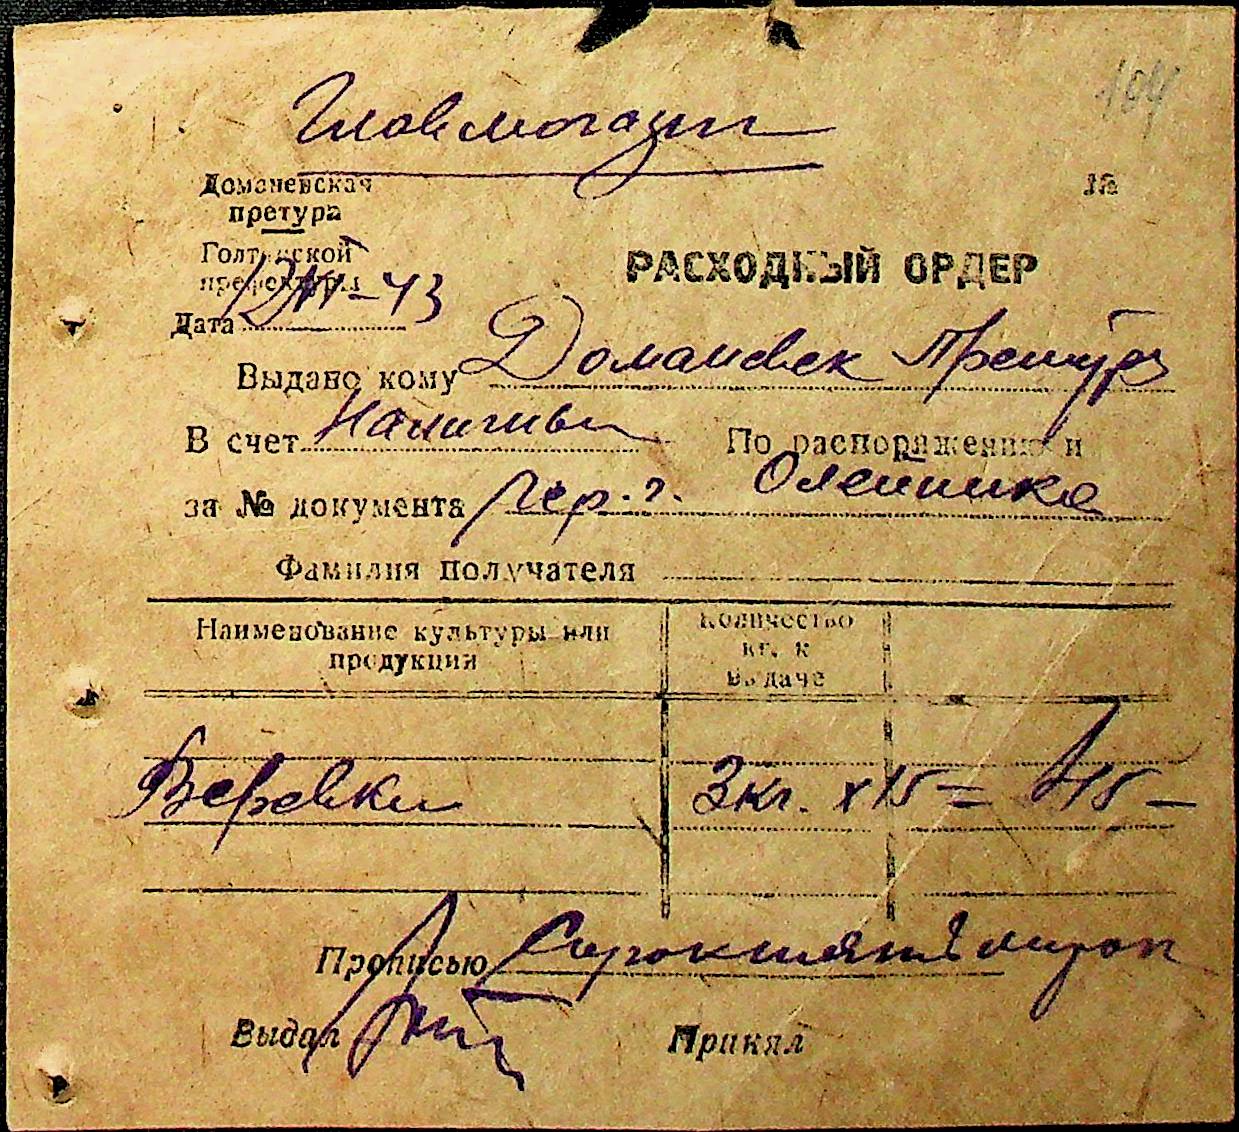 104
Главмогазин
Доманевская
претура
№
Голтянской
префектуры
РАСХОДНЫЙ ОРДЕР
Дата 12/VI-43
Выдано кому Доманевск Претура
В счет Наличными По распоряжению и
за № документа Олейника
Фамилия получателя
Наименование культуры или
продукции
Количество
кг. к
выдаче
Веревки 3кг. х 15 = 45-
Прописью Сорокпять марок
Выдал Принял